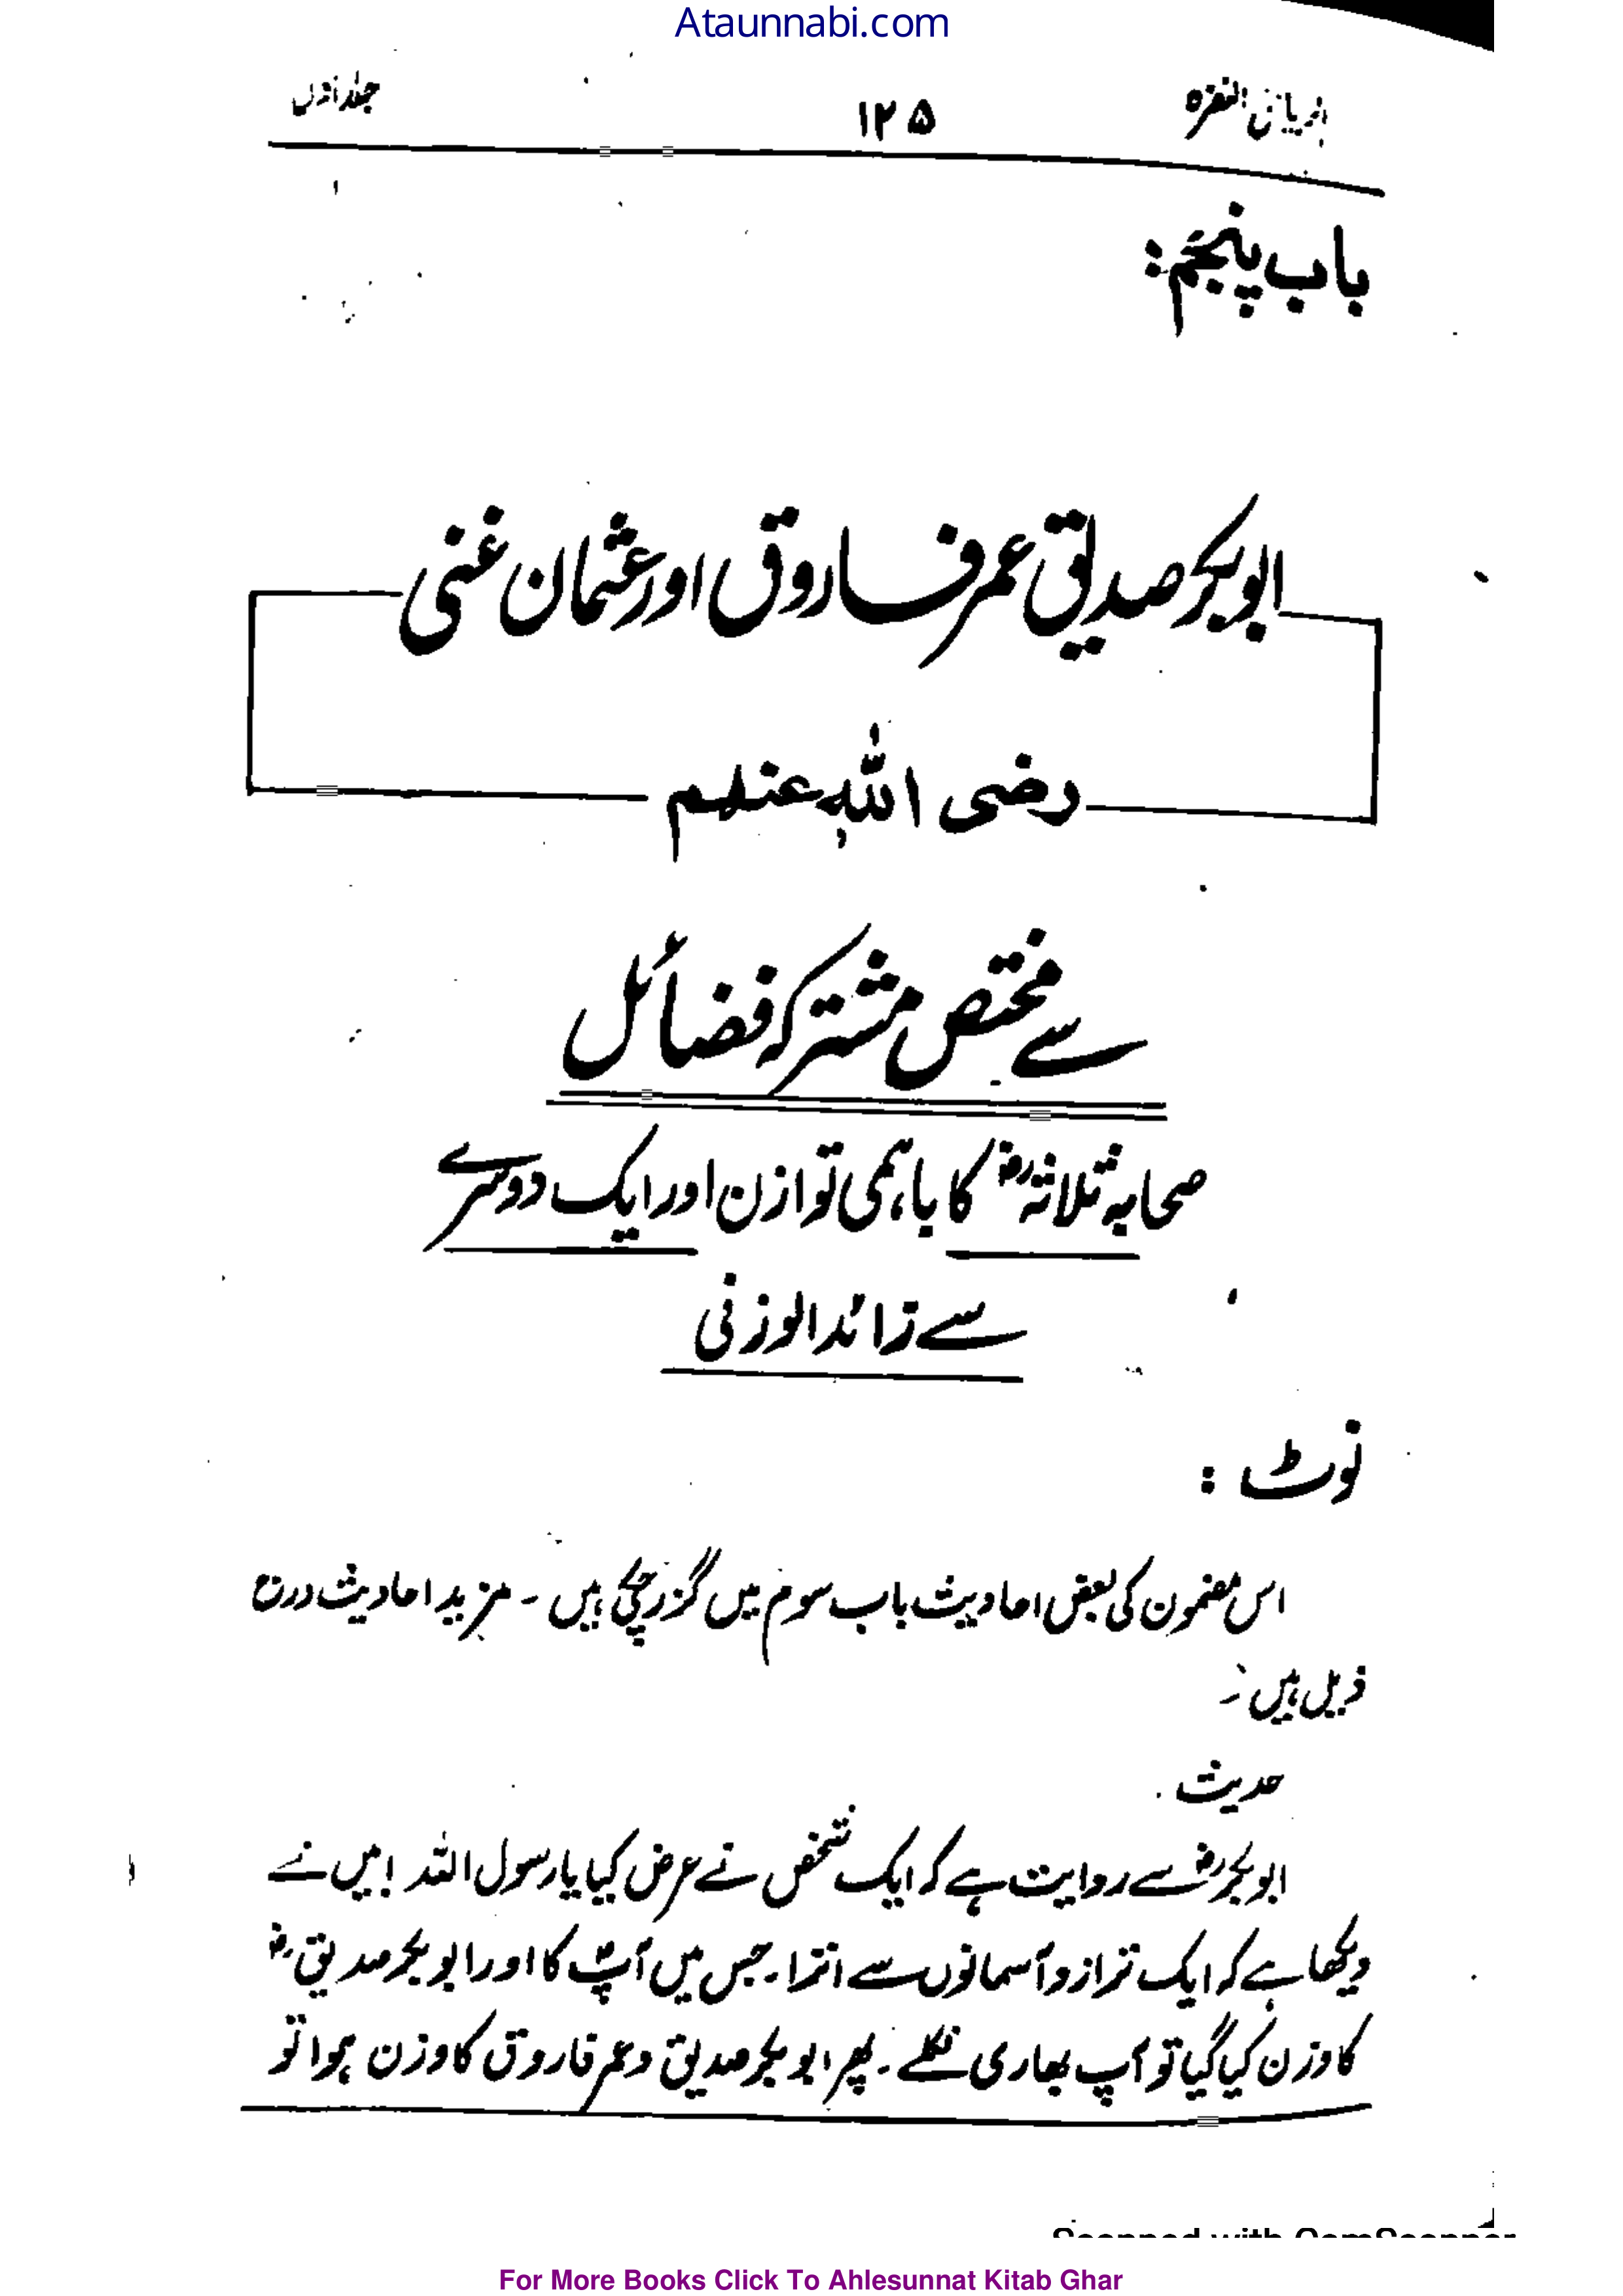 Ataunnabi.com
الریاض النضرہ ۱۲۵ جلد اول
باب پنجم:
ابوبکر صدیق عمر فاروق اور عثمان غنی
رضی اللہ عنہم
سے مختص مشترکہ فضائل
صحابہ ثلاثہؓ کا باہمی توازن اور ایک دوسرے
سے زائد الوزنی
نوٹ :
اس مضمون کی بعض احادیث باب سوم میں گزر چکی ہیں ۔ مزید احادیث درن
ذیل ہیں ۔
حدیث
ابوبکرؓ سے روایت ہے کہ ایک شخص نے عرض کیا یا رسول اللہ ! میں نے
دیکھا ہے کہ ایک ترازو آسمانوں سے اترا ۔ جس میں آپؐ کا اور ابوبکر صدیقؓ
کا وزن کیا گیا تو آپ بھاری نکلے ۔ پھر ابوبکر صدیق و عمر فاروق کا وزن ہوا تو
Scanned with CamScanner
For More Books Click To Ahlesunnat Kitab Ghar